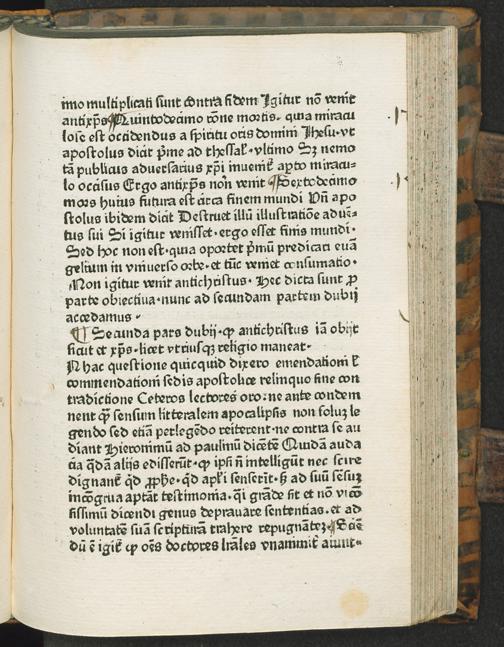 imo multiplicati sunt contra fidem Igitur nō venit
antixp̄s ¶ Quintodecimo rōne mortis· quia miracu
lose est occidendus a spiritu oris domini Ihesu· vt
apostolus dicit pͥme ad thessal̓· vltimo Sz nemo
tā publicus adversarius xp̄i invenit̓ ap̄to miracu-
lo occisus Ergo antixp̄s non venit ¶ Sextodecimo
mors huius futura est circa finem mundi Vn̄ apo
stolus ibidem dicit Destruet illū illustratiōe aduē-
tus sui Si igitur venisset· ergo esset finis mundi·
Sed hoc non est· quia oportet pͥmū predicari euā
gelium in vniuerso orbe· et tūc veniet consumatio·
Non igitur venit antichristus· Hec dicta sunt ꝓ
parte obiectiua· nunc ad secundam partem dubij
accedamus·
¶ Secunda pars dubij· ꝙ antichristus iā obijt
sicut et xp̄s· licet vtriusqꝫ religio maneat·
N hac questione quicquid dixero emendationi et
commendationi sedis apostolice relinquo sine con
tradictione Ceteros lectores oro· ne ante condem
nent ꝙ sensum litteralem apocalipsis non soluꝫ le
gendo sed etiā perlegēdo reiterent· ne contra se au
diant Hieronimū ad paulinū dicētē Quidā auda
cia q̄dā alijs edisserūt· ꝙ ipsi n̄ intelligūt nec scire
dignant̓ qd̓ ꝓphe· qd̓ apl̓i senserīt· ad suū sēsuꝫ
incōgrua aptāt testimonia· qͥ grāde sit et nō vicio
sissimū dicendi genus deprauare sententias· et ad
voluntatē suā scripturā trahere repugnāteꝫ ¶ Sciē
dū ē igit̓ ꝙ oēs doctores lr̄ales vnanimit̓ aiunt·